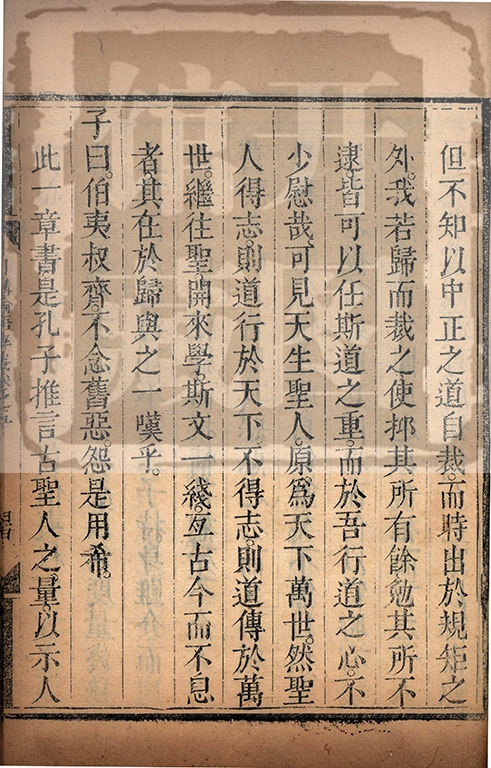 但不知以中正之道自裁。而時出於規矩之
外。我若歸而裁之使抑其所有餘勉其所不
逮。皆可以任斯道之重。而於吾行道之心。不
少慰哉。可見天生聖人。原爲天下萬世。然聖
人得志。則道行於天下。不得志。則道傳於萬
世。繼往聖。開來學。斯文一綫。亙古今而不息
者。其在於歸與之一嘆乎。
子曰。伯夷叔齊。不念舊惡。怨是用希。
此一章書。是孔子推言古聖人之量。以示人